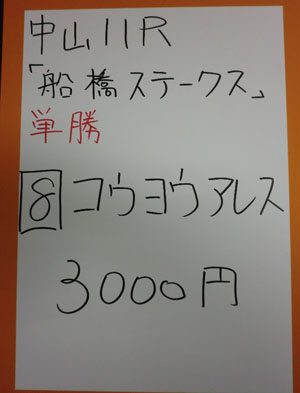 中山11R
「船橋ステークス」
単勝
8 コウヨウアレス
3000円